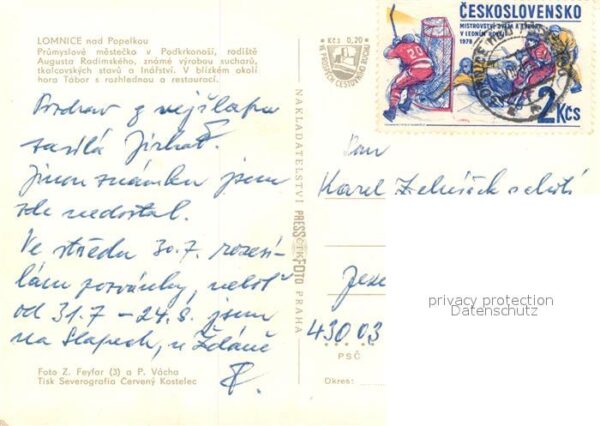 LOMNICE nad Popelkou
Průmyslové městečko v Podkrkonoší, rodiště
Augusta Radimského, známé výrobou sucharů,
tkalcovských stavů a lnářství. V blízkém okolí
hora Tábor s rozhlednou a restaurací.
Pozdrav z
zasílá Jirka
Jinou známku jsem
zde nedostal.
Ve středu 30.7. rozesí-
lám pozvánky, neboť
od 31.7 - 24.8. jsem
na Slapech, u Ždáně
Foto Z. Feyfar (3) a P. Vácha
Tisk Severografia Červený Kostelec
Kčs 0,20
VE PROSPĚCH CESTOVNÍHO RUCHU
NAKLADATELSTVÍ PRESSFOTO PRAHA
ČTK
ČESKOSLOVENSKO
MISTROVSTVÍ SVĚTA A EVROPY
V LEDNÍM HOKEJI
1978
20
2 Kčs
Pan
Karel
43003
PSČ
Okres:
privacy protection
Datenschutz